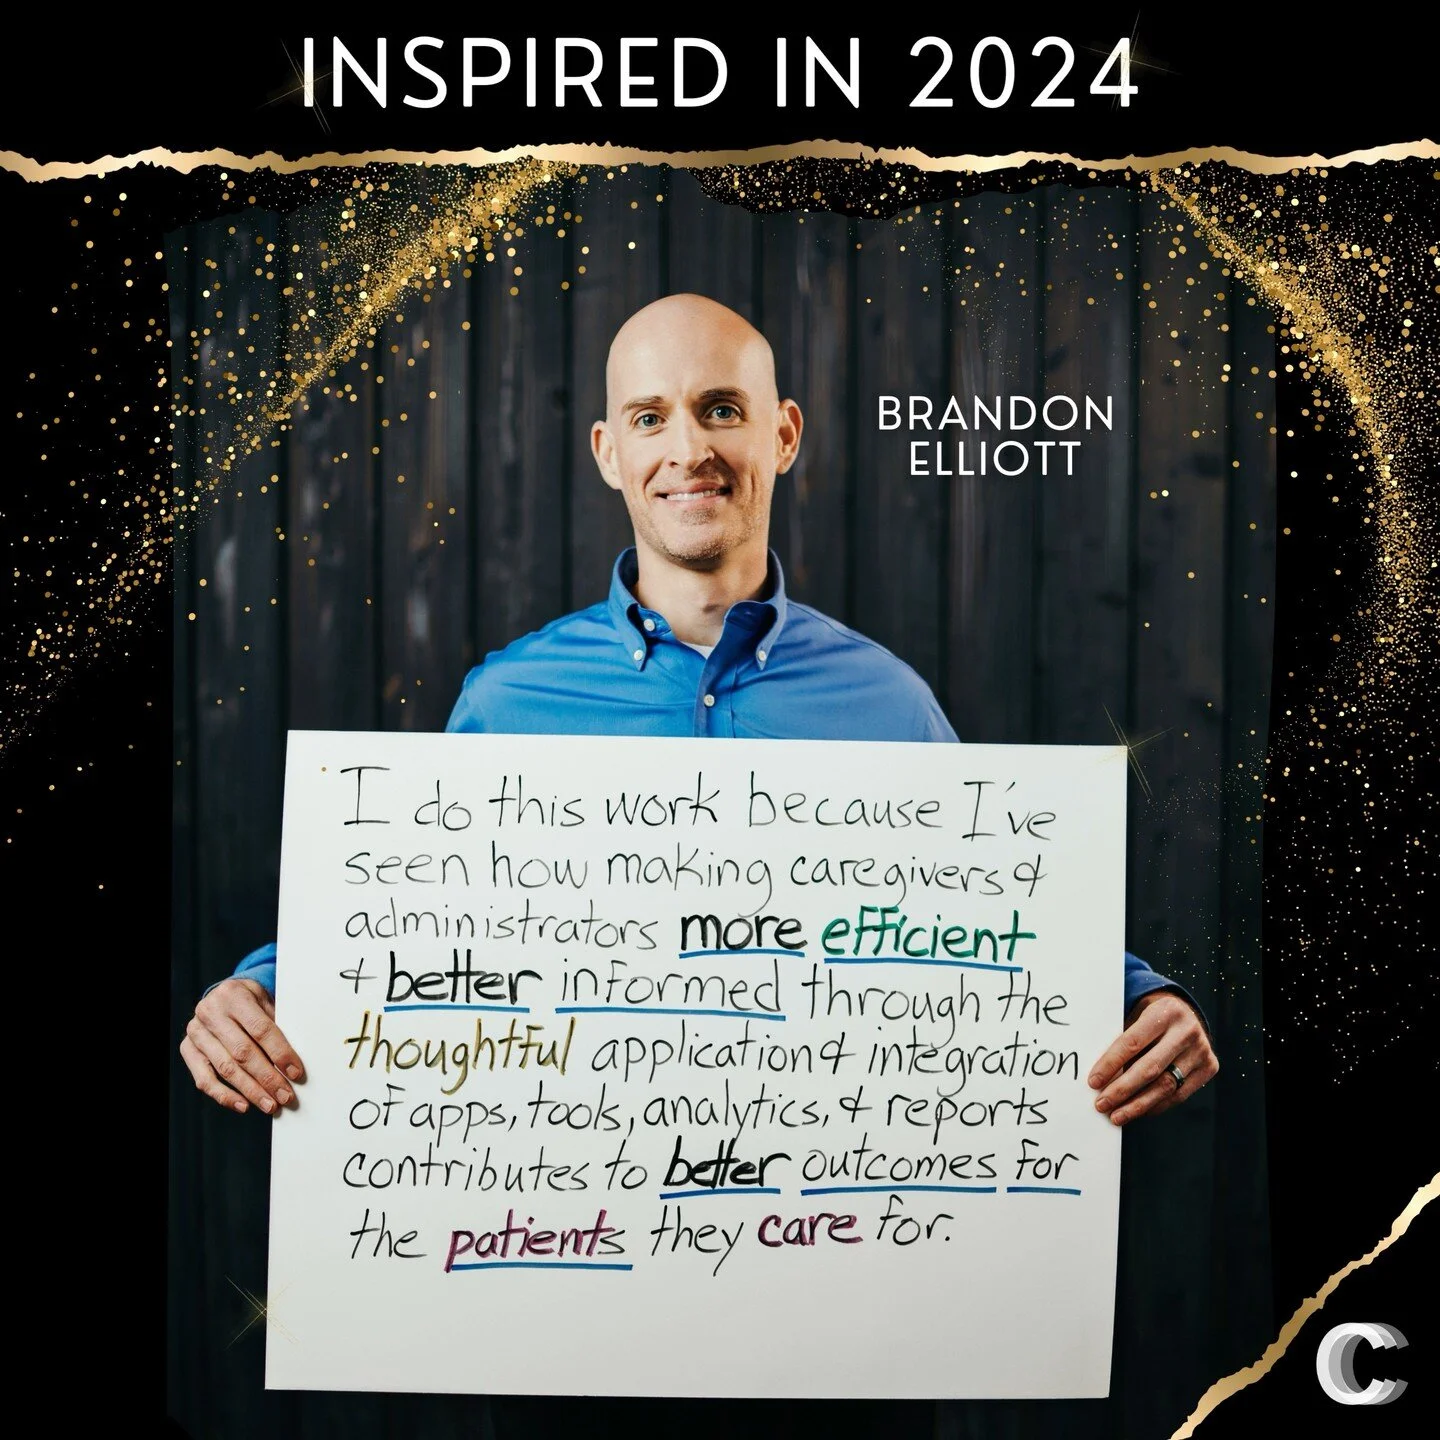 INSPIRED IN 2024
BRANDON
ELLIOTT
I do this work because I've
seen how making caregivers &
administrators more efficient
& better informed through the
thoughtful application & integration
of apps, tools, analytics, & reports
contributes to better outcomes for
the patients they care for.
C